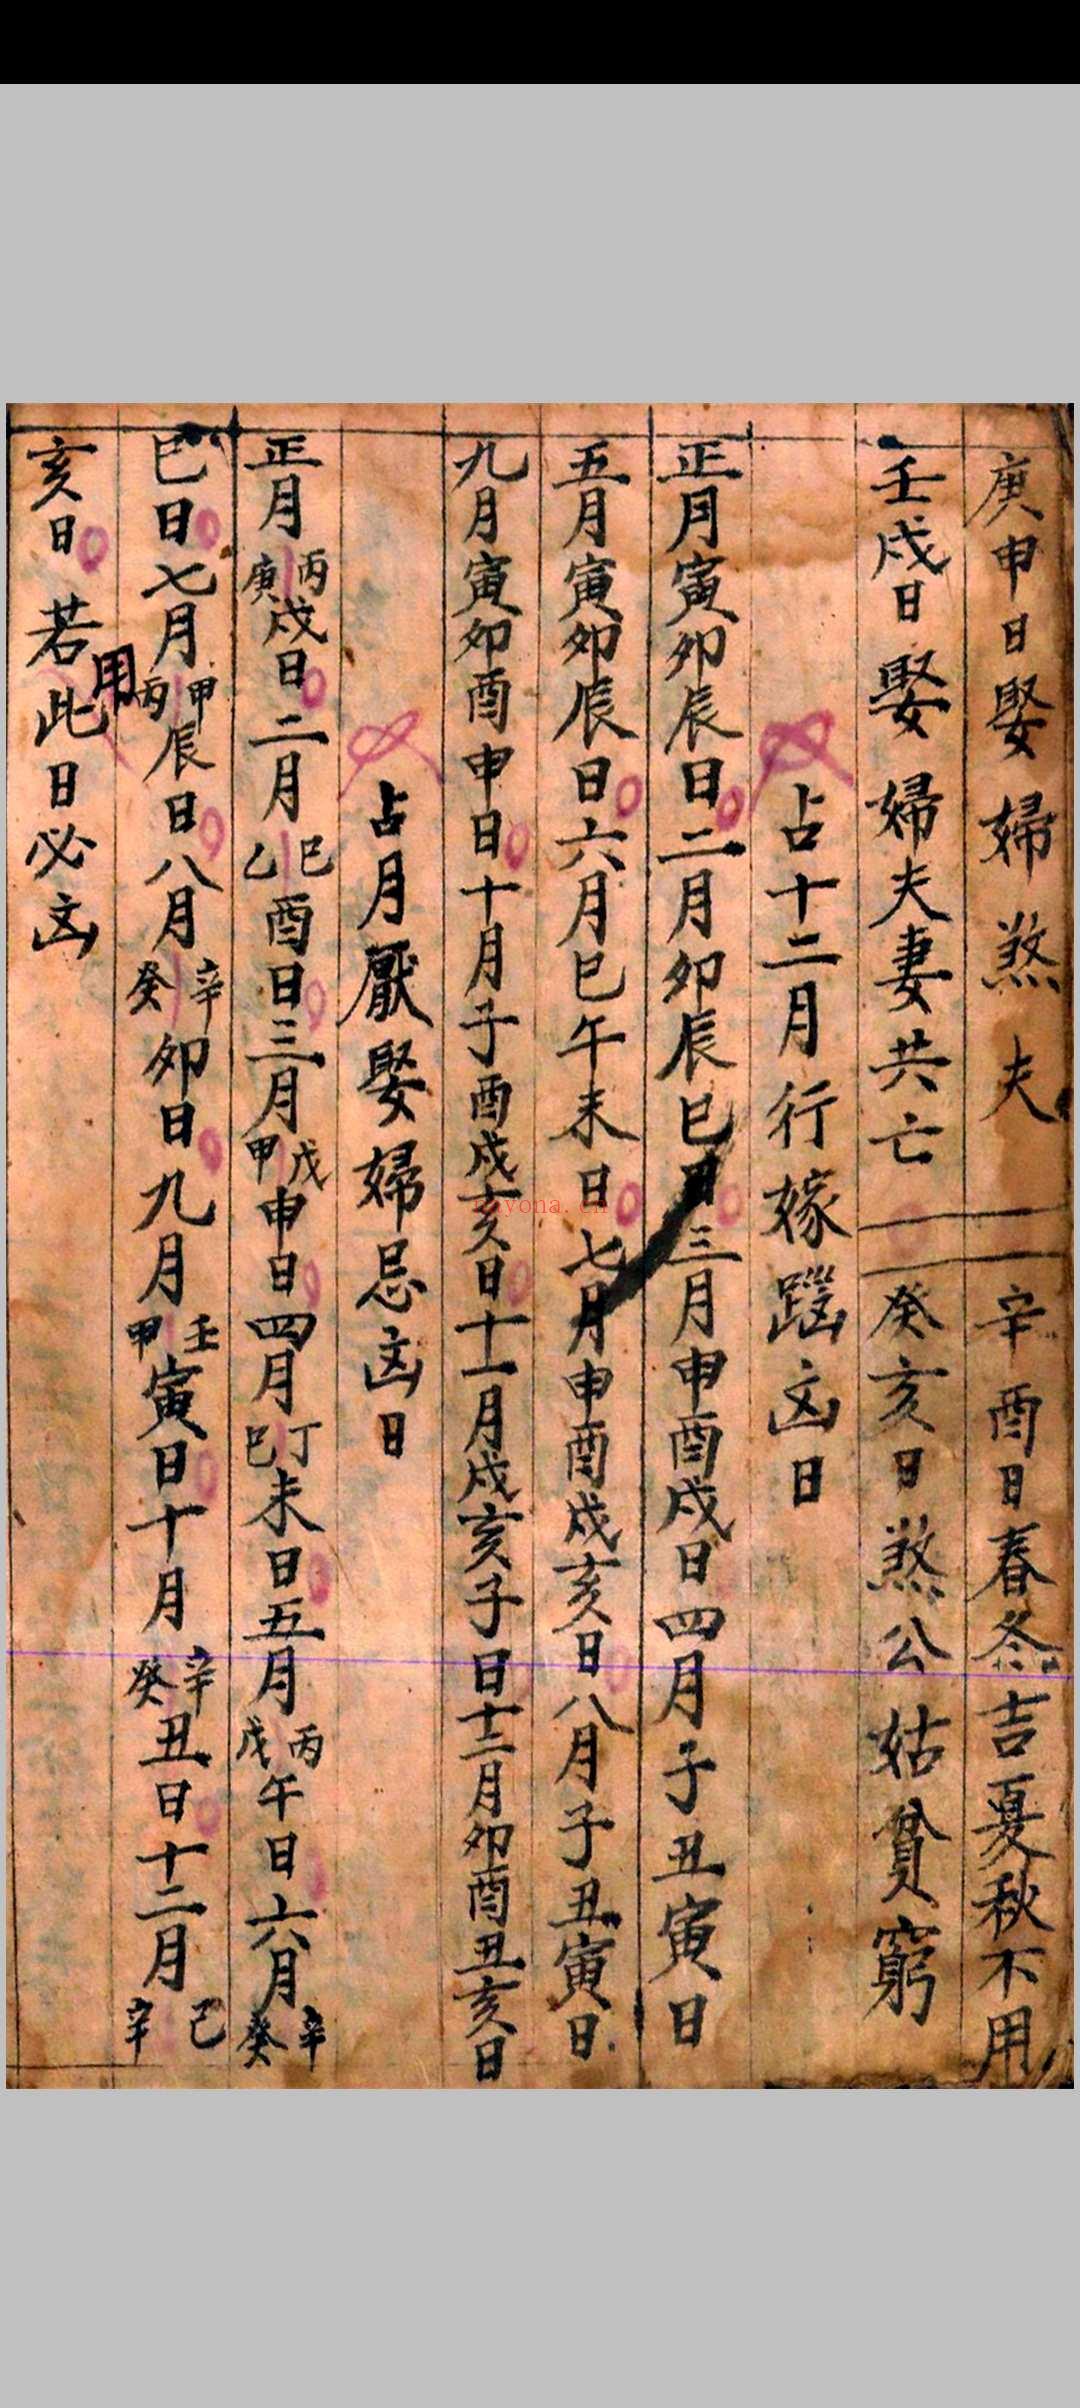 庚申日娶婦煞夫 辛酉日春冬吉夏秋不用
壬戌日娶婦夫妻共亡 癸亥日煞公姑貧窮
占十二月行嫁 凶日
正月寅卯辰日二月卯辰巳日三月申酉戌日四月子丑寅日
五月寅卯辰日六月巳午未日七月申酉戌亥日八月子丑寅日
九月寅卯酉申日十月子酉戌亥日十一月戌亥子日十二月卯酉丑亥日
占月厭娶婦忌凶日
正月丙庚戌日二月巳乙酉日三月戊甲申日四月丁巳未日五月丙戊午日六月辛癸
巳日七月甲丙辰日八月辛癸卯日九月壬甲寅日十月辛癸丑日十二月己辛
亥日若用此日必凶
nayona.cn